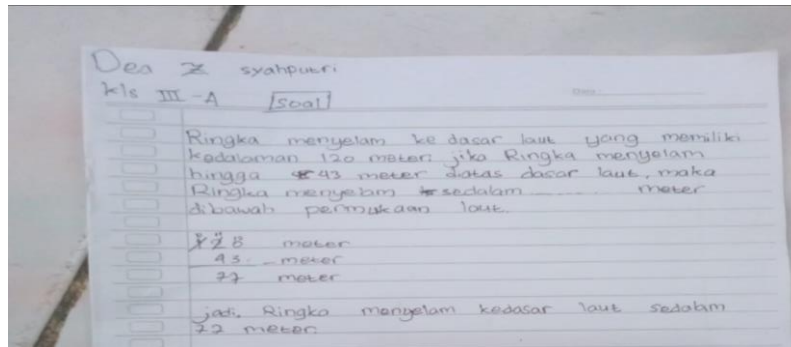 Dea Z syahputri
kls III-A soal
Ringka menyelam ke dasar laut yang memiliki
kedalaman 120 meter. jika Ringka menyelam
hingga 43 meter diatas dasar laut, maka
Ringka menyelam sedalam ........ meter
dibawah permukaan laut.
meter
43 meter
77 meter
jadi, Ringka menyelam kedasar laut sedalam
77 meter